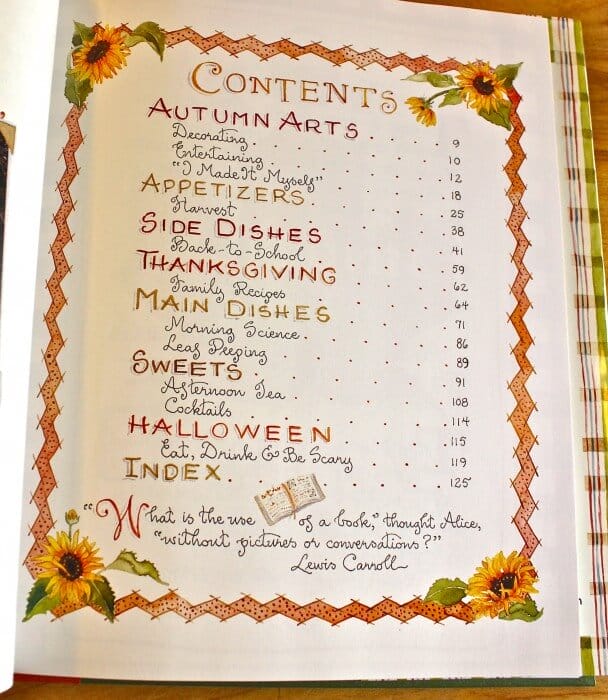 CONTENTS
AUTUMN ARTS . . . . 9
Decorating . . . . . . . 10
Entertaining . . . . . . . 12
"I Made It Myself" . . . . . 18
APPETIZERS . . . . . 25
Harvest . . . . . . . 38
SIDE DISHES . . . . . 41
Back-to-School . . . . . 59
THANKSGIVING . . . . 62
Family Recipes . . . . . 64
MAIN DISHES . . . . . 71
Morning Science . . . . . 86
Leaf Peeping . . . . . . 89
SWEETS . . . . . . . 91
Afternoon Tea . . . . . . 108
Cocktails . . . . . . . 114
HALLOWEEN . . . . 115
Eat, Drink & Be Scary . . . . 119
INDEX . . . . . . . 125
"What is the use of a book," thought Alice,
"without pictures or conversations?"
Lewis Carroll